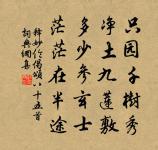 只园千树秀
净土九莲敷
多少参玄士
茫茫在半途
释妙伦偈颂八十五首
词典网集